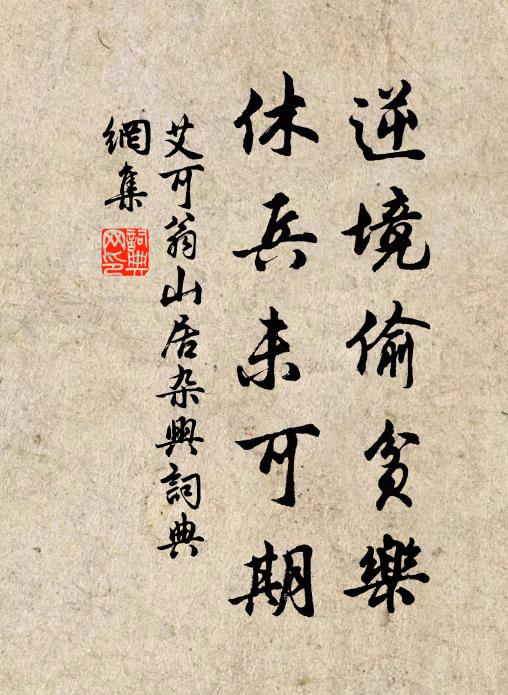 逆境偷貧樂
休兵未可期
艾可翁山居杂興詞典
網集
詞典
网印